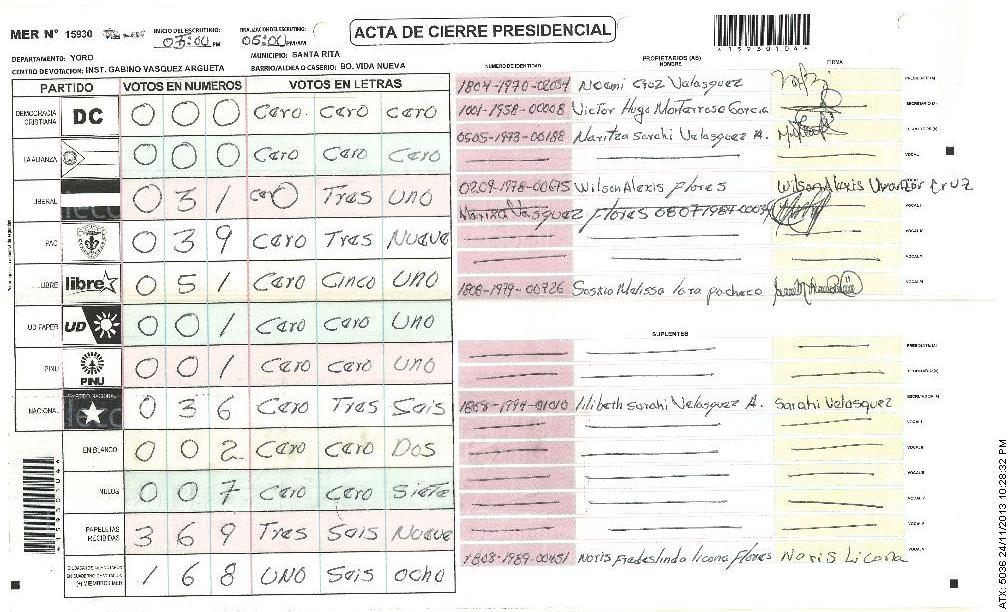 MER N° 15930
INICIO DEL ESCRUTINIO: 07:00 PM
FINALIZACION DEL ESCRUTINIO: 05:00 PM/AM
ACTA DE CIERRE PRESIDENCIAL
DEPARTAMENTO: YORO MUNICIPIO: SANTA RITA
CENTRO DE VOTACION: INST. GABINO VASQUEZ ARGUETA BARRIO/ALDEA O CASERIO: BO. VIDA NUEVA
PARTIDO VOTOS EN NUMEROS VOTOS EN LETRAS
DEMOCRACIA CRISTIANA DC 0 0 0 Cero Cero Cero
LA ALIANZA 0 0 0 Cero Cero Cero
LIBERAL 0 3 1 Cero Tres Uno
PAC 0 3 9 Cero Tres Nueve
LIBRE libre 0 5 1 Cero Cinco Uno
UD FAPER UD 0 0 1 Cero Cero Uno
PINU PINU 0 0 1 Cero Cero Uno
NACIONAL 0 3 6 Cero Tres Seis
EN BLANCO 0 0 2 Cero Cero Dos
NULOS 0 0 7 Cero Cero Siete
PAPELETAS RECIBIDAS 3 6 9 Tres Seis Nueve
1 6 8 UNO Seis Ocho
NUMERO DE IDENTIDAD PROPIETARIOS (AS) NOMBRE FIRMA
Noemi Cruz Velasquez PRESIDENTE(A)
1001-1958-00008 Victor Hugo Monterroso Garcia SECRETARIO(A)
0505-1993-00188 Naritza Sarahi Velasquez A. ESCRUTADOR(A)
VOCAL I
0209-1978-00675 Wilson Alexis Flores Wilson Alexis Cruz
Maritza Vasquez Flores
1808-1979-00726 Saskia Melissa Lara pacheco
SUPLENTES
PRESIDENTE(A)
SECRETARIO(A)
1808-1994-01010 lilibeth Sarahi Velasquez A. Sarahi Velasquez ESCRUTADOR(A)
1808-1989-00451 Noris Fredeslinda licona flores Noris Licona
ATX: 5036 24/11/2013 10:28:32 PM